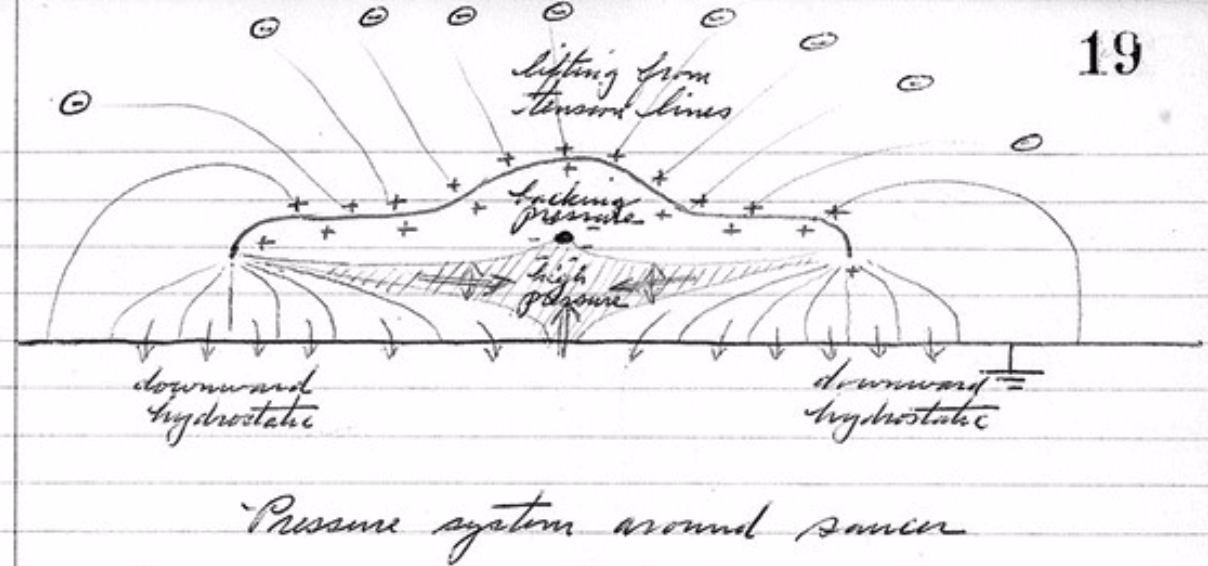 19
lifting from
tension lines
backing
pressure
high
pressure
downward
hydrostatic
downward
hydrostatic
Pressure system around saucer